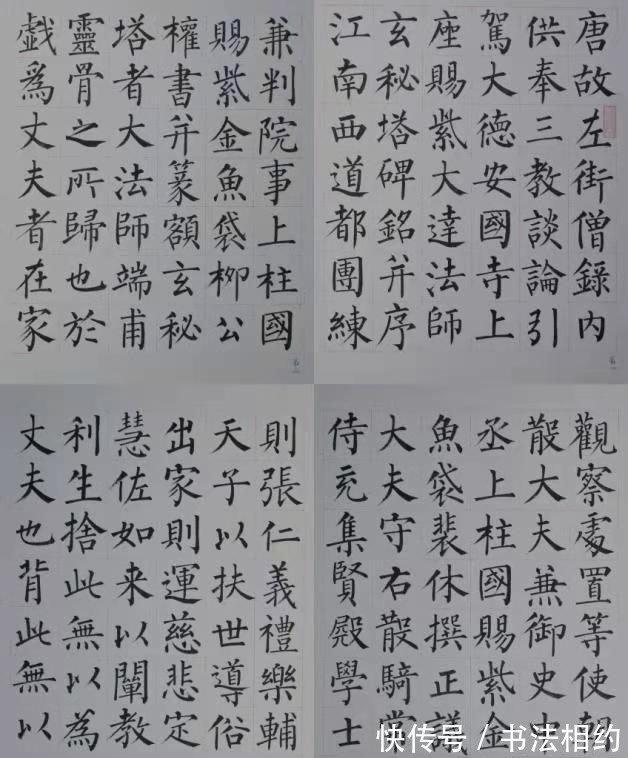 唐故左街僧錄內
供奉三教談論引
駕大德安國寺上
座賜紫大達法師
玄秘塔碑銘并序
江南西道都團練
觀察處置等使朝
散大夫兼御史中
丞上柱國賜紫金
魚袋裴休撰正議
大夫守右散騎常
侍充集賢殿學士
兼判院事上柱國
賜紫金魚袋柳公
權書并篆額玄秘
塔者大法師端甫
靈骨之所歸也於
戲爲丈夫者在家
則張仁義禮樂輔
天子以扶世導俗
出家則運慈悲定
慧佐如来以闡教
利生捨此無以為
丈夫也背此無以
快传号 / 书法相约